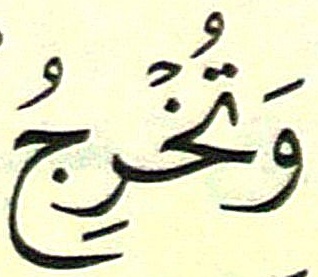 وَتُخْرِجُ